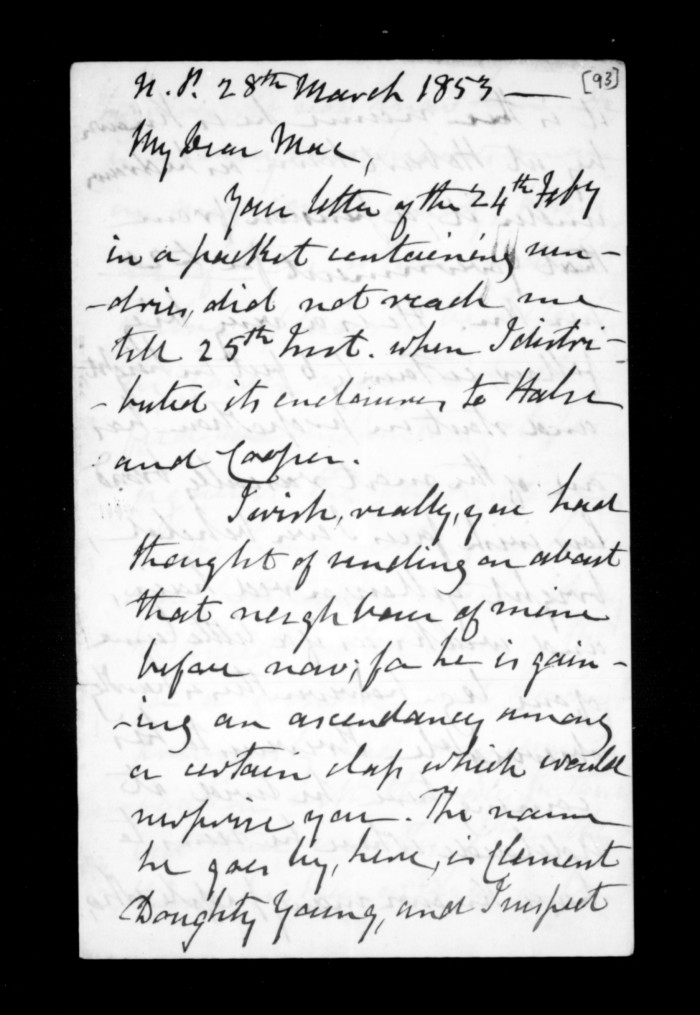 N.P. 28th March 1853 — [93]
My Dear Mac,
Your letter of the 24th Feby
in a packet containing sun-
-dries, did not reach me
till 25th Inst. when I distri-
-buted its enclosures to Halse
and Cooper.
I wish, really, you had
thought of sending on about
that neighbour of mine
before now; for he is gain-
-ing an ascendancy among
a certain class which would
surprise you. The name
he goes by, here, is Clement
Doughty Young, and I suspect